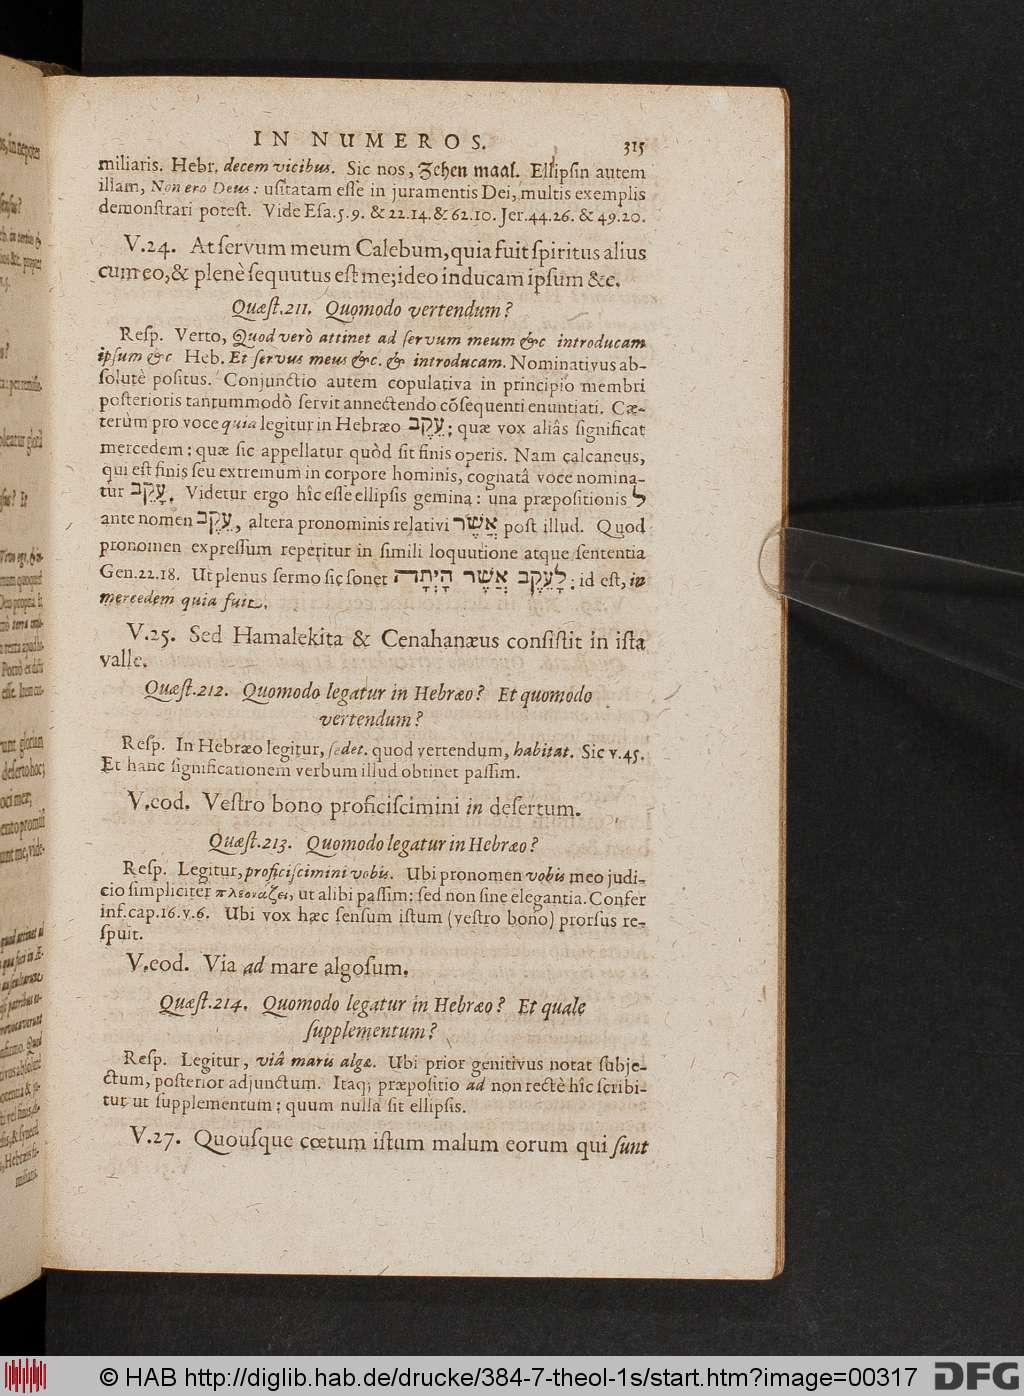 IN NUMEROS. 315
miliaris. Hebr. decem vicibus. Sic nos, Zehen maal. Ellipsin autem
illam, Non ero Deus: usitatam esse in juramentis Dei, multis exemplis
demonstrari potest. Vide Esa.5.9. & 22.14. & 62.10. Jer.44.26. & 49.20.
V.24. At servum meum Calebum, quia fuit spiritus alius
cum eo, & plenè sequutus est me; ideo inducam ipsum &c.
Quæst.211. Quomodo vertendum?
Resp. Verto, Quod verò attinet ad servum meum &c introducam
ipsum &c Heb. Et servus meus &c. & introducam. Nominativus ab-
solutè positus. Conjunctio autem copulativa in principio membri
posterioris tantummodò servit annectendo cõsequenti enuntiati. Cæ-
terùm pro voce quia legitur in Hebræo עֵקֶב; quæ vox aliâs significat
mercedem: quæ sic appellatur quòd sit finis operis. Nam calcaneus,
qui est finis seu extremum in corpore hominis, cognatâ voce nomina-
tur עָקֵב. Videtur ergo hîc esse ellipsis gemina: una præpositionis ל
ante nomen עֵקֶב, altera pronominis relativi אֲשֶׁר post illud. Quod
pronomen expressum reperitur in simili loquutione atque sententia
Gen.22.18. Ut plenus sermo sic sonet לָעֵקֶב אֲשֶׁר הָיְתָה: id est, in
mercedem quia fuit.
V.25. Sed Hamalekita & Cenahanæus consistit in ista
valle.
Quæst.212. Quomodo legatur in Hebræo? Et quomodo
vertendum?
Resp. In Hebræo legitur, sedet. quod vertendum, habitat. Sic v.45.
Et hanc significationem verbum illud obtinet passim.
V.eod. Vestro bono proficiscimini in desertum.
Quæst.213. Quomodo legatur in Hebræo?
Resp. Legitur, proficiscimini vobis. Ubi pronomen vobis meo judi-
cio simpliciter πλεονάζει, ut alibi passim: sed non sine elegantia. Confer
inf.cap.16.v.6. Ubi vox hæc sensum istum (vestro bono) prorsus re-
spuit.
V.eod. Via ad mare algosum.
Quæst.214. Quomodo legatur in Hebræo? Et quale
supplementum?
Resp. Legitur, viâ maris algæ. Ubi prior genitivus notat subje-
ctum, posterior adjunctum. Itaq; præpositio ad non rectè hîc scribi-
tur ut supplementum; quum nulla sit ellipsis.
V.27. Quousque cœtum istum malum eorum qui sunt
© HAB http://diglib.hab.de/drucke/384-7-theol-1s/start.htm?image=00317
DFG